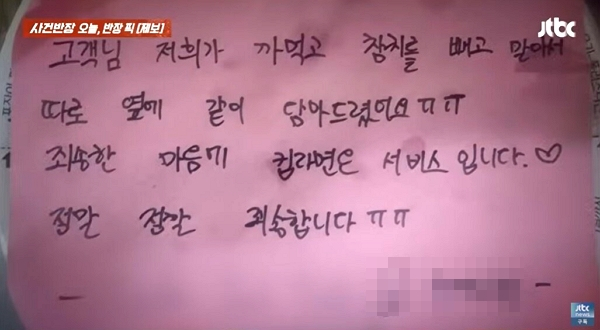 사건반장 오늘, 반장 픽 [제보]
jtbc
고객님 저희가 까먹고 참치를 빼고 말아서
따로 옆에 같이 담아드렸어요 ㅠㅠ
죄송한 마음에 컵라면은 서비스입니다.♡
정말 정말 죄송합니다 ㅠㅠ
jtbc
news
구독